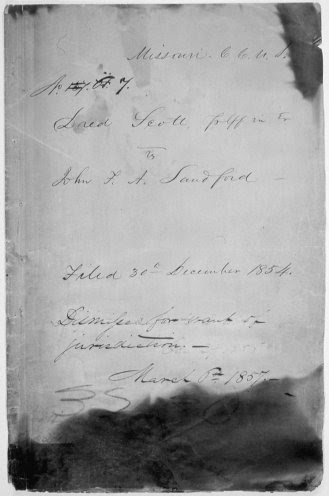 Missouri C. C. U. S.
No. 7.
Dred Scott, Pltff in Er
vs
John F. A. Sandford —
Filed 30th December 1854.
Dismissed for want of
jurisdiction. —
March 6th 1857 —